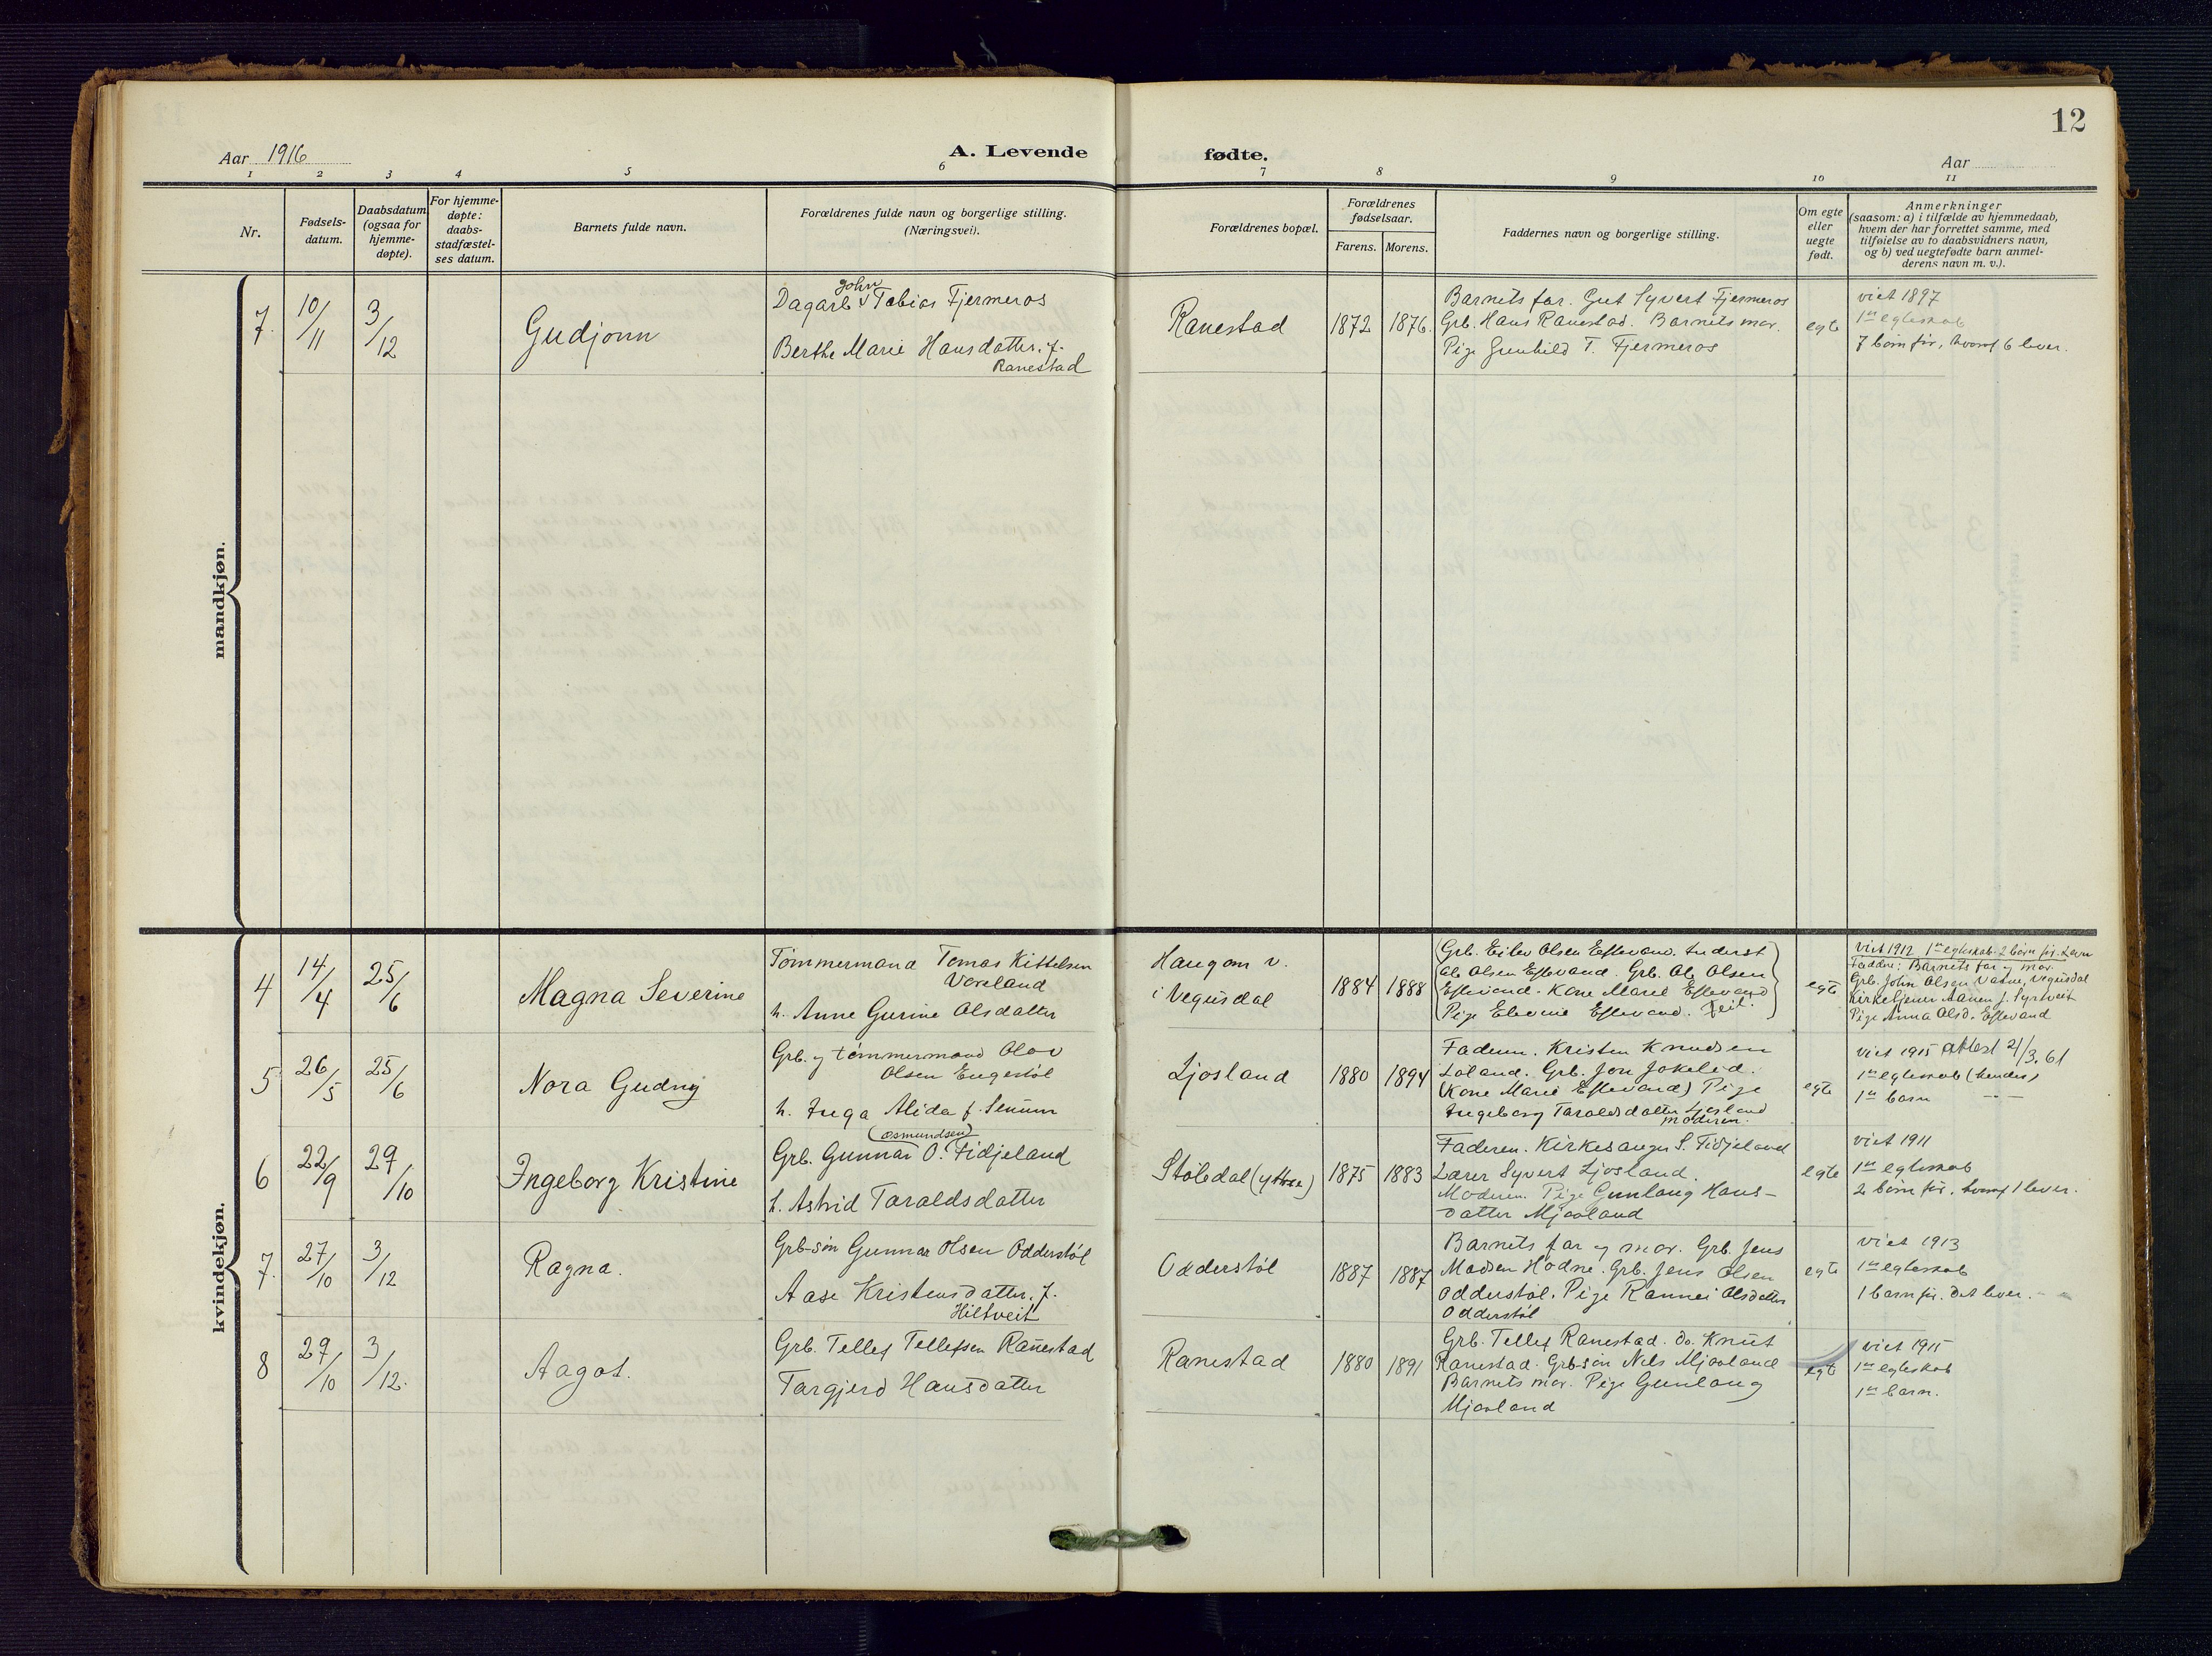 12
Aar 1916
A. Levende fødte.
Aar
1 2 3 4 5 6 7 8 9 10 11
Nr.
Fødsels-
datum.
Daabsdatum
(ogsaa for
hjemme-
døpte).
For hjemme-
døpte:
daabs-
stadfæstel-
ses datum.
Barnets fulde navn.
Forældrenes fulde navn og borgerlige stilling.
(Næringsvei).
Forældrenes bopæl.
Forældrenes
fødselsaar.
Farens. Morens.
Faddernes navn og borgerlige stilling.
Om egte
eller
uegte
født.
Anmerkninger
(saasom: a) i tilfælde av hjemmedaab,
hvem der har forrettet samme, med
tilføielse av to daabsvidners navn,
og b) ved uegtefødte barn anmel-
derens navn m. v.).
mandkjøn.
7 10/11 3/12
Gudjonn
John
Dagarb. v Tobias Fjermeros
Berthe Marie Hansdatter. f.
Ranestad
Ranestad
1872 1876.
Barnets far. Gut Syvert Fjermeros
Grb. Hans Ranestad. Barnets mor.
Pige Gunhild T. Fjermeros
egte
viet 1897
1ste egteskab
7 børn før, hvoraf 6 lever.
kvindekjøn.
4 14/4 25/6
Magna Severine
Tømmermand Tomas Kittelsen
Væreland
h. Anne Gurine Olsdatter
Haugom v.
i Vegusdal
1884 1888
(Grb. Eilev Olsen Eftevand. Inderst
Ole Olsen Eftevand. Grb. Ole Olsen
Eftevand. Kone Marie Eftevand
Pige Elevine Eftevand. Feil.)
egte
viet 1912 1ste egteskab. 2 børn før. Lever
Faddre: Barnets far og mor.
Grb. John Olsen Vatne, Vegusdal
Kirketjener Aanen J. Syrtveit
Pige Anna Olsd. Eftevand
5 26/5 25/6
Nora Gudny
Grb. og tømmermand Olav
Olsen Engestøl
h. Inga Alida f. Senum
Ljosland
1880 1894
Faderen. Kristen Knudsen
Loland. Grb. Jon Jokelid.
(Kone Marie Eftevand) Pige
Ingeborg Taraldsdatter Ljosland
Moderen.
egte
viet 1915 Attest 21/3.61
1ste egteskab (hendes)
1ste barn — —
6 22/9 29/10
Ingeborg Kristine
(Osmundsen)
Grb. Gunnar O. Fidjeland
h. Astrid Taraldsdatter
Stoledal (yttre)
1875 1883
Faderen. Kirkesanger S. Fidjeland
Lærer Syvert Ljosland.
Moderen. Pige Gunlaug Hans-
datter Mjaaland
egte
viet 1911
1ste egteskab
2 børn før. hvoraf 1 lever.
7. 27/10 3/12
Ragna.
Grb-søn Gunnar Olsen Odderstøl
Aase Kristensdatter. f.
Hiltveit
Odderstøl
1887 1887
Barnets far og mor. Grb. Jens
Madsen Hodne. Grb. Jens Olsen
Odderstøl. Pige Rannei Olsdatter
Odderstøl
egte
viet 1913
1ste egteskab
1 barn før. Det lever.
8 29/10 3/12.
Aagot.
Grb. Tellef Tellefsen Ranestad
Targjerd Hansdatter
Ranestad
1880 1891
Grb. Tellef Ranestad. do. Knut
Ranestad. Grb-søn Nils Mjaaland
Barnets mor. Pige Gunlaug
Mjaaland
egte
viet 1915
1ste egteskab
1ste barn.